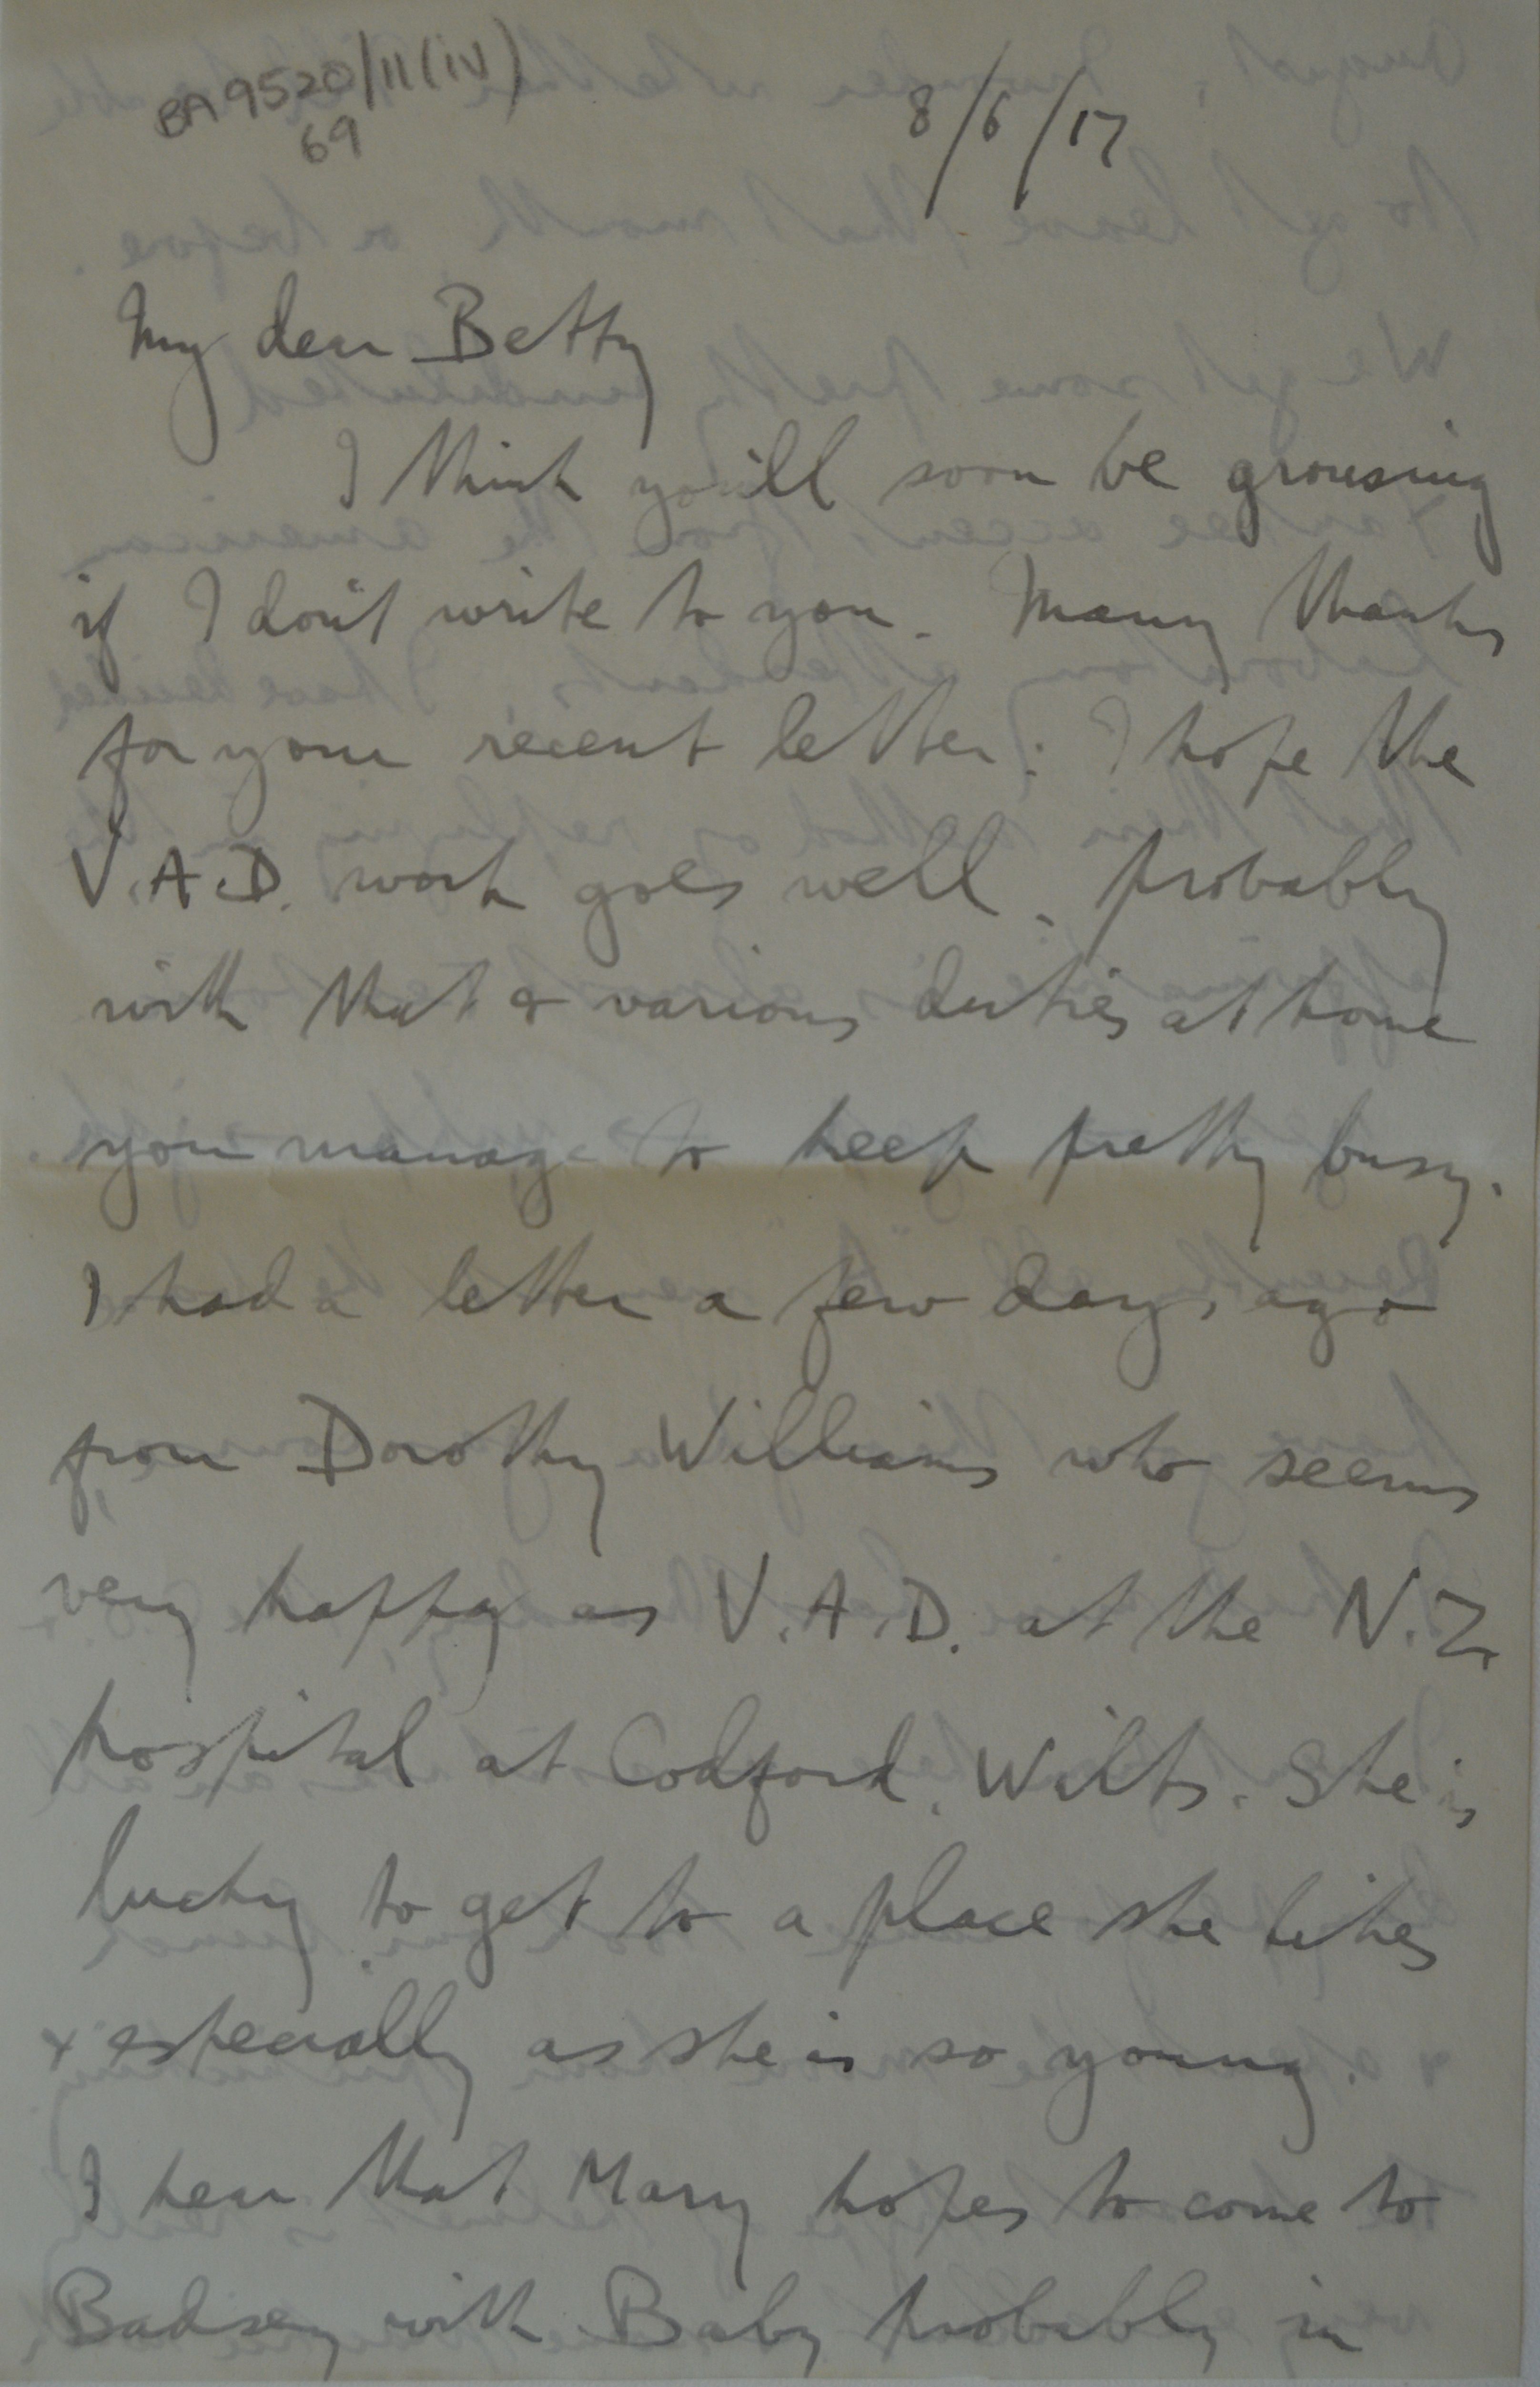 BA 9520/11(iv)
69
8/6/17
My dear Betty
I think you'll soon be grousing
if I don't write to you. Many thanks
for your recent letter: I hope the
V.A.D. work goes well. Probably
with that & various duties at home
you manage to keep pretty busy.
I had a letter a few days ago
from Dorothy Williams who seems
very happy as V.A.D. at the N.Z.
hospital at Codford. Wilts. She is
lucky to get to a place she likes
& especially as she is so young.
I hear that Mary hopes to come to
Badsey with Baby probably in